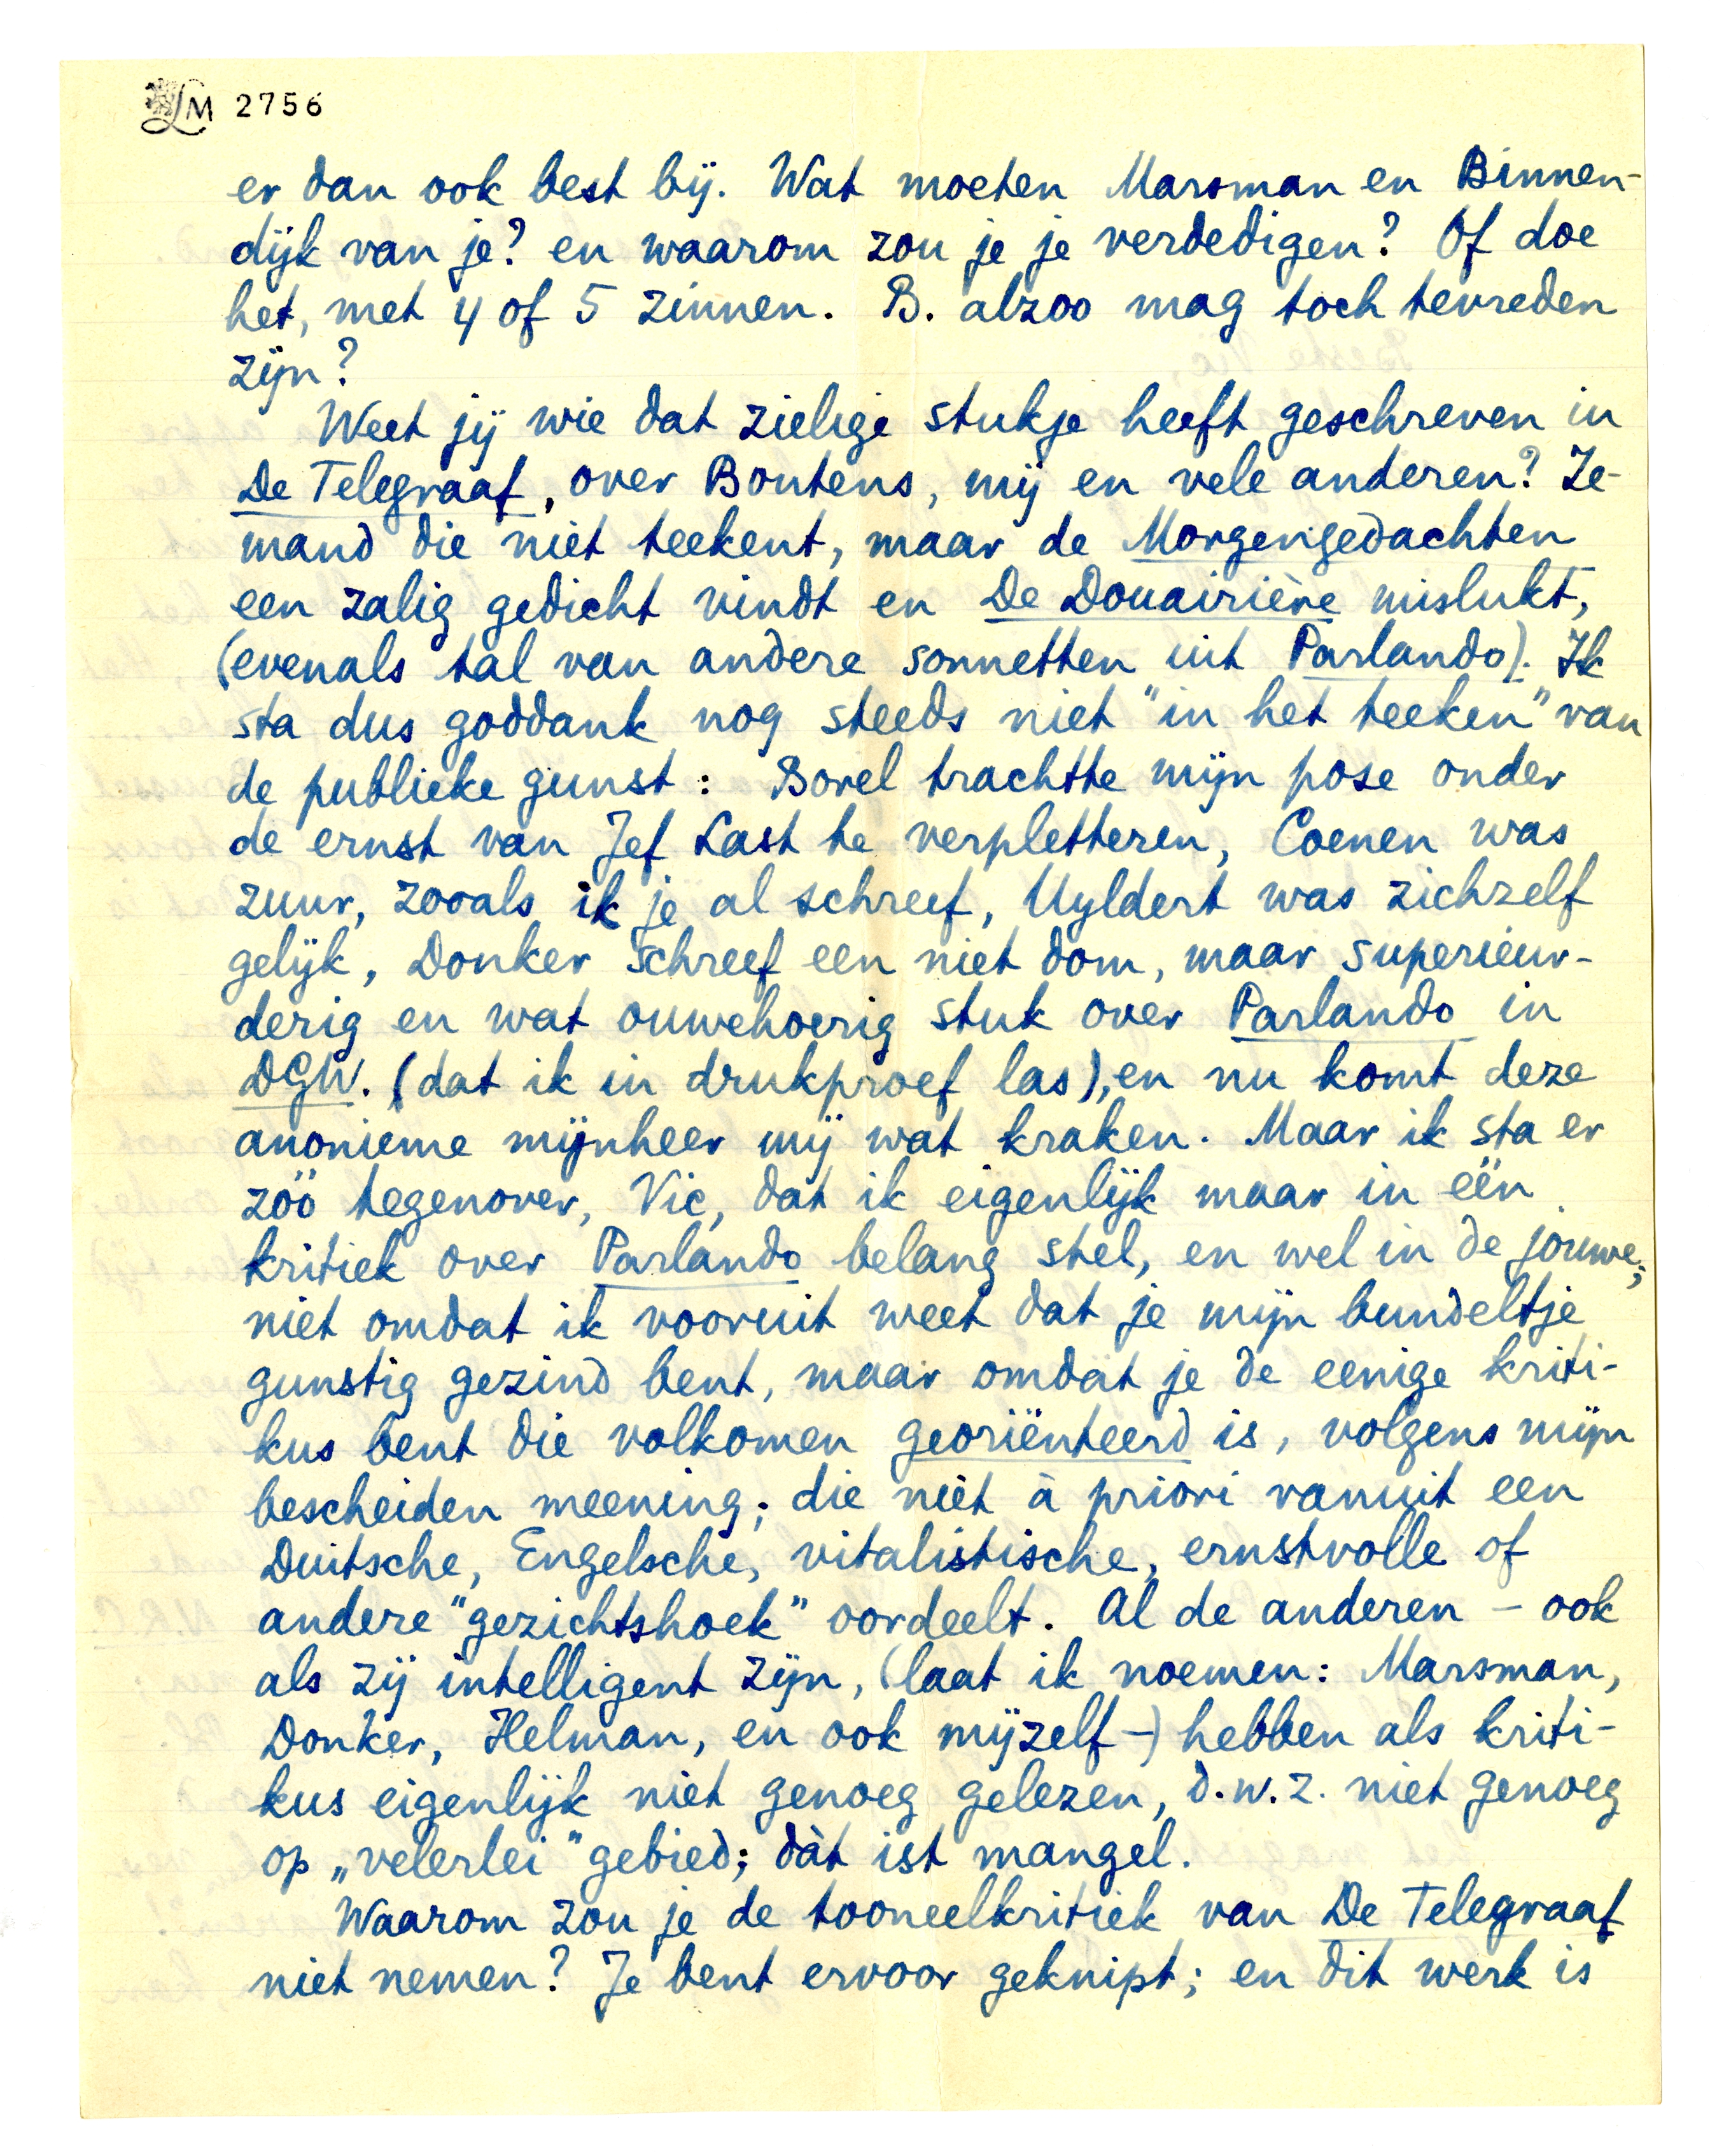 LM 2756
er dan ook best bij. Wat moeten Marsman en Binnen-
dijk van je? en waarom zou je je verdedigen? Of doe
het, met 4 of 5 zinnen. B. alzoo mag toch tevreden
zijn?
Weet jij wie dat zielige stukje heeft geschreven in
De Telegraaf, over Boutens, mij en vele anderen? Ie-
mand die niet teekent, maar de Morgengedachten
een zalig gedicht vindt en De Douairière mislukt,
(evenals tal van andere sonnetten uit Parlando). Ik
sta dus goddank nog steeds niet "in het teeken" van
de publieke gunst: Borel trachtte mijn pose onder
de ernst van Jef Last te verpletteren, Coenen was
zuur, zooals ik je al schreef, Uyldert was zichzelf
gelijk, Donker schreef een niet dom, maar superieur-
derig en wat ouwehoerig stuk over Parlando in
DGW. (dat ik in drukproef las), en nu komt deze
anonieme mijnheer mij wat kraken. Maar ik sta er
zóó tegenover, Vic, dat ik eigenlijk maar in één
kritiek over Parlando belang stel, en wel in de jouwe;
niet omdat ik vooruit weet dat je mijn bundeltje
gunstig gezind bent, maar omdat je de eenige kriti-
kus bent die volkomen georiënteerd is, volgens mijn
bescheiden meening; die niet à priori vanuit een
Duitsche, Engelsche, vitalistische, ernstvolle of
andere "gezichtshoek" oordeelt. Al de anderen - ook
als zij intelligent zijn, (laat ik noemen: Marsman,
Donker, Helman, en ook mijzelf -) hebben als kriti-
kus eigenlijk niet genoeg gelezen, d.w.z. niet genoeg
op „velerlei" gebied; dàt ist mangel.
Waarom zou je de tooneelkritiek van De Telegraaf
niet nemen? Je bent ervoor geknipt; en dit werk is